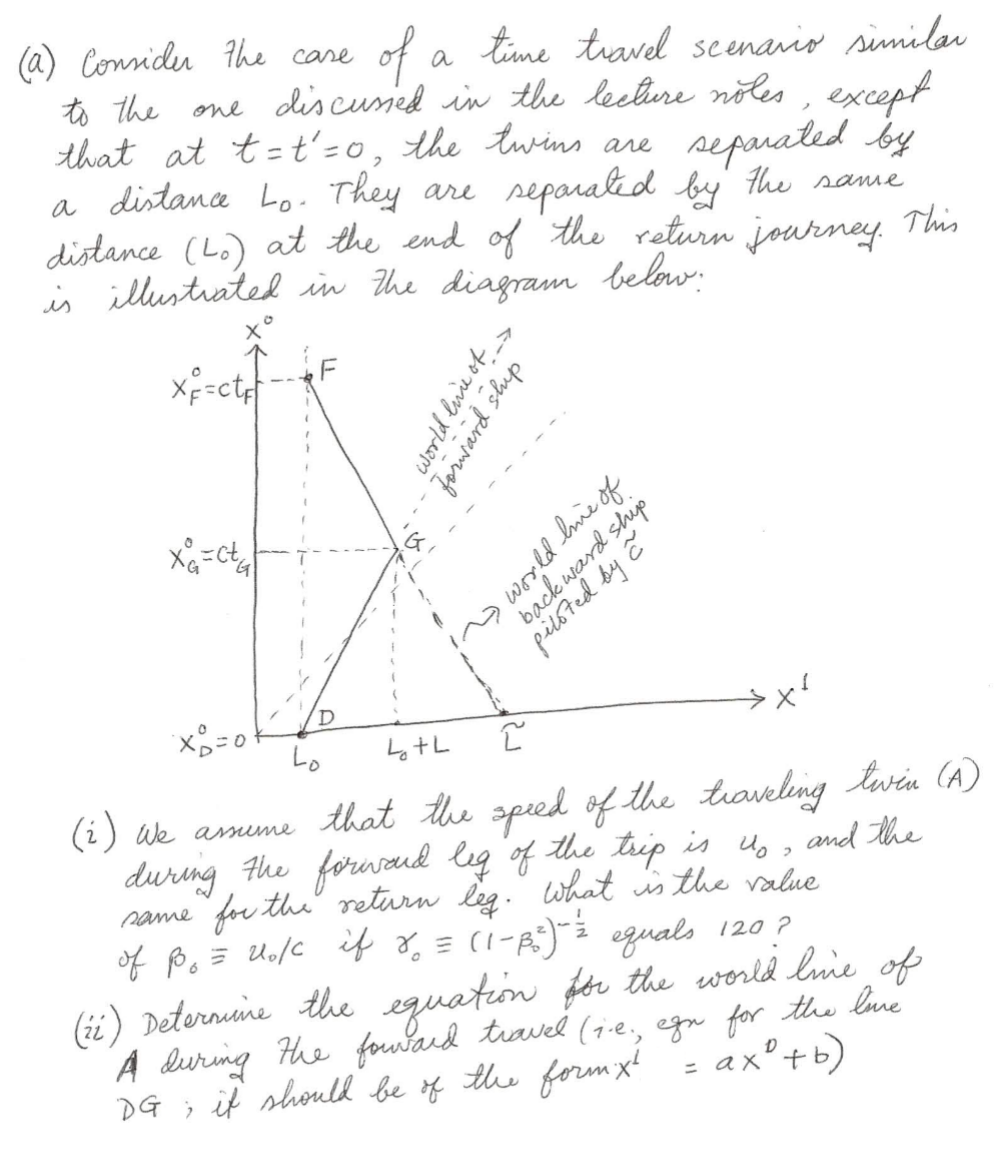 (a) Consider the case of a time travel scenario similar
to the one discussed in the lecture notes, except
that at t=t'=0, the twins are separated by
a distance L₀. They are separated by the same
distance (L₀) at the end of the return journey. This
is illustrated in the diagram below:
x⁰
x⁰_F=ct_F
F
world line of
forward ship
x⁰_G=ct_G
G
world line of
backward ship
piloted by c̃
x¹
x⁰_D=0
D
L₀
L₀+L
L̃
(i) We assume that the speed of the traveling twin (A)
during the forward leg of the trip is u₀, and the
same for the return leg. What is the value
of β₀ ≡ u₀/c if γ₀ ≡ (1-β₀²)^{-1/2} equals 120?
(ii) Determine the equation for the world line of
A during the forward travel (i.e., eqn for the line
DG; it should be of the form x¹ = ax⁰+b)